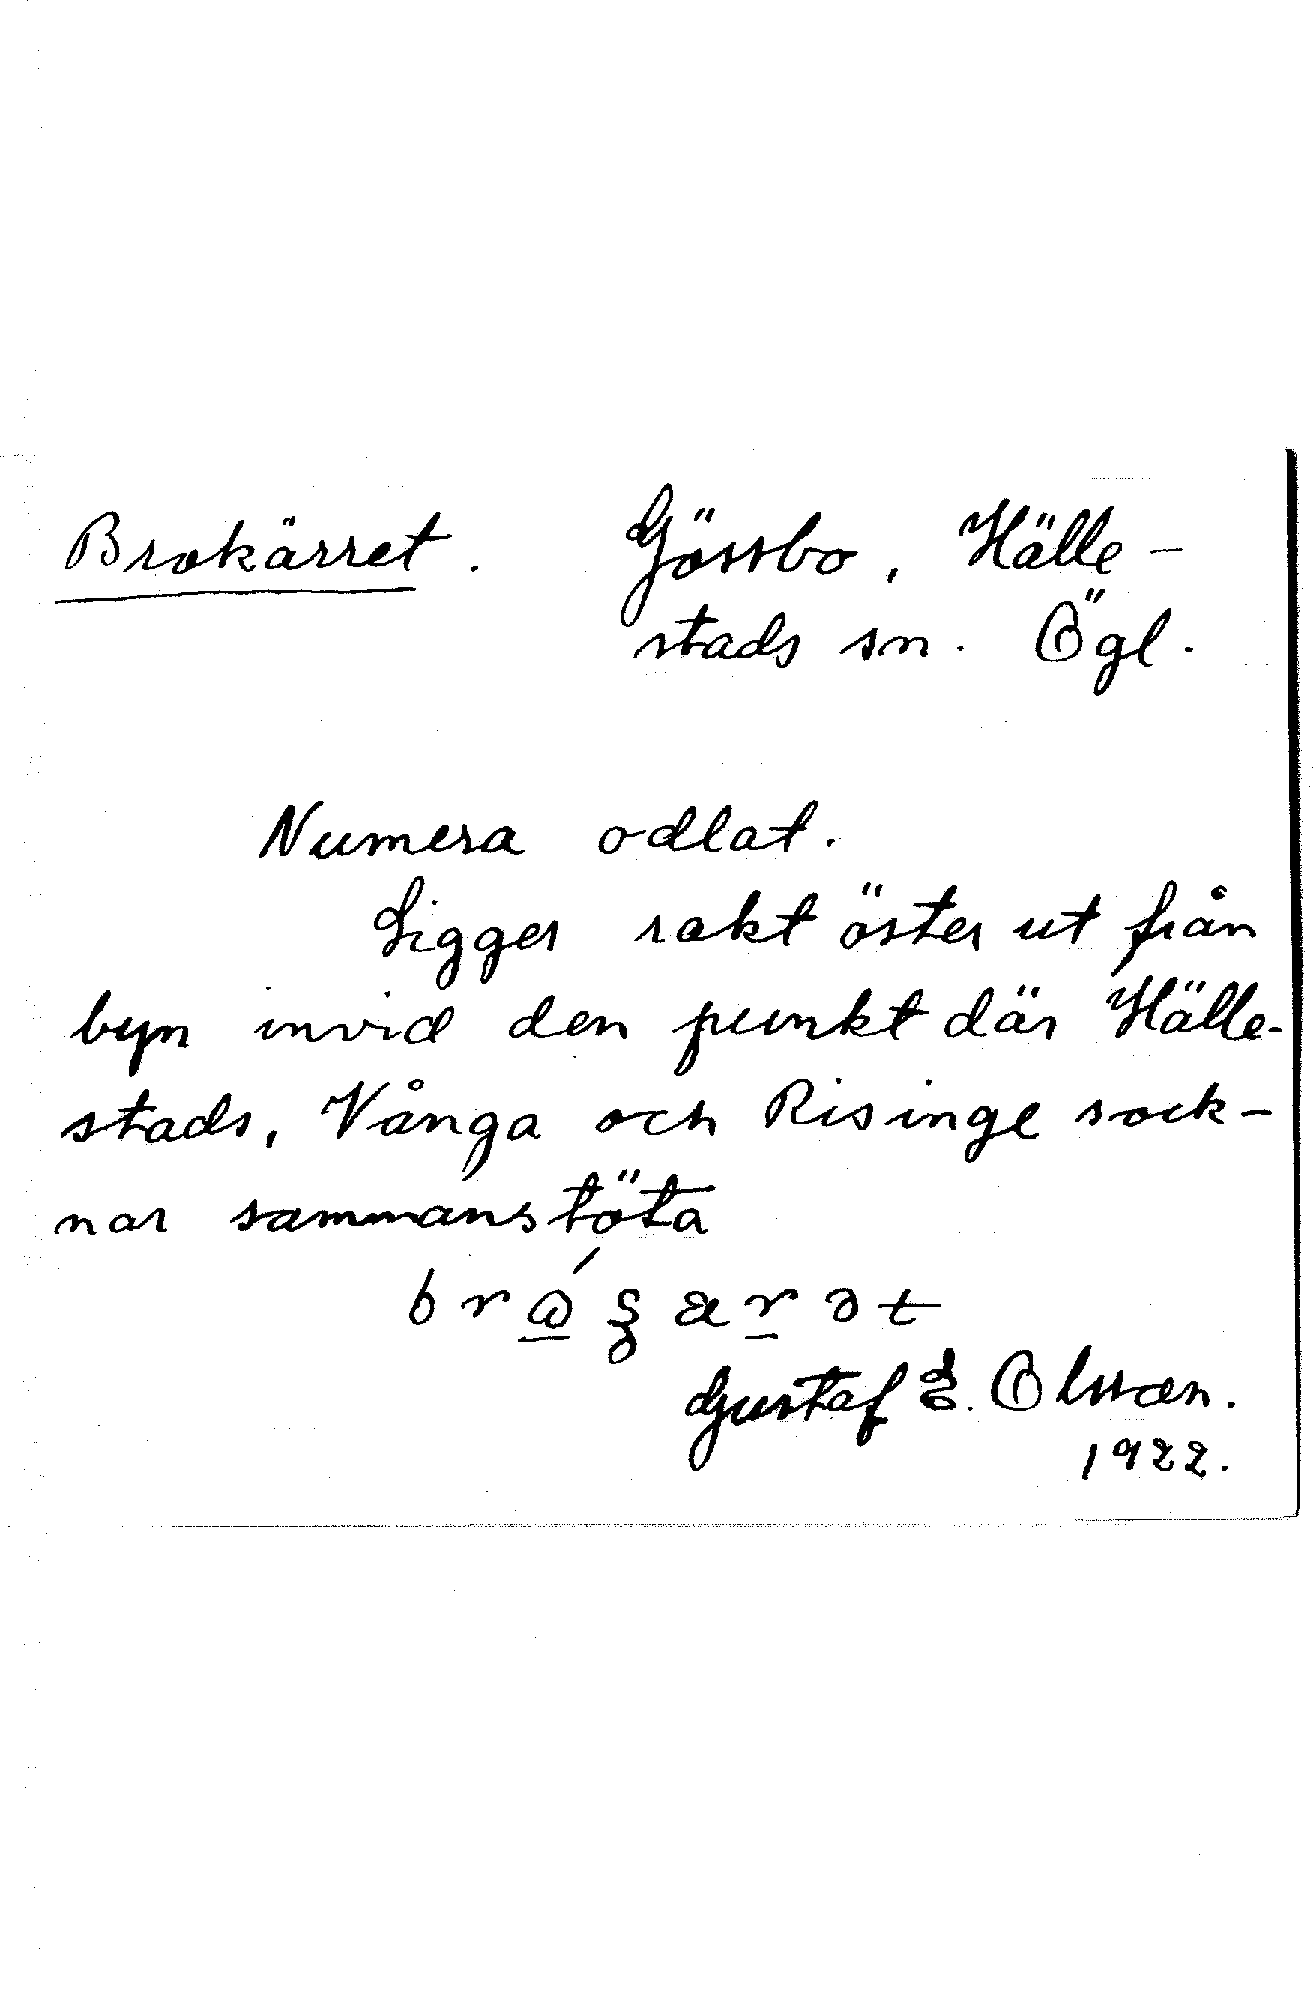 Brokärret. Gössbo, Hälle-
stads sn. Ögl.
Numera odlat.
Ligger rakt öster ut från
byn invid den punkt där Hälle-
stads, Vånga och Risinge sock-
nar sammanstöta
Gustaf E. Olsson.
1922.